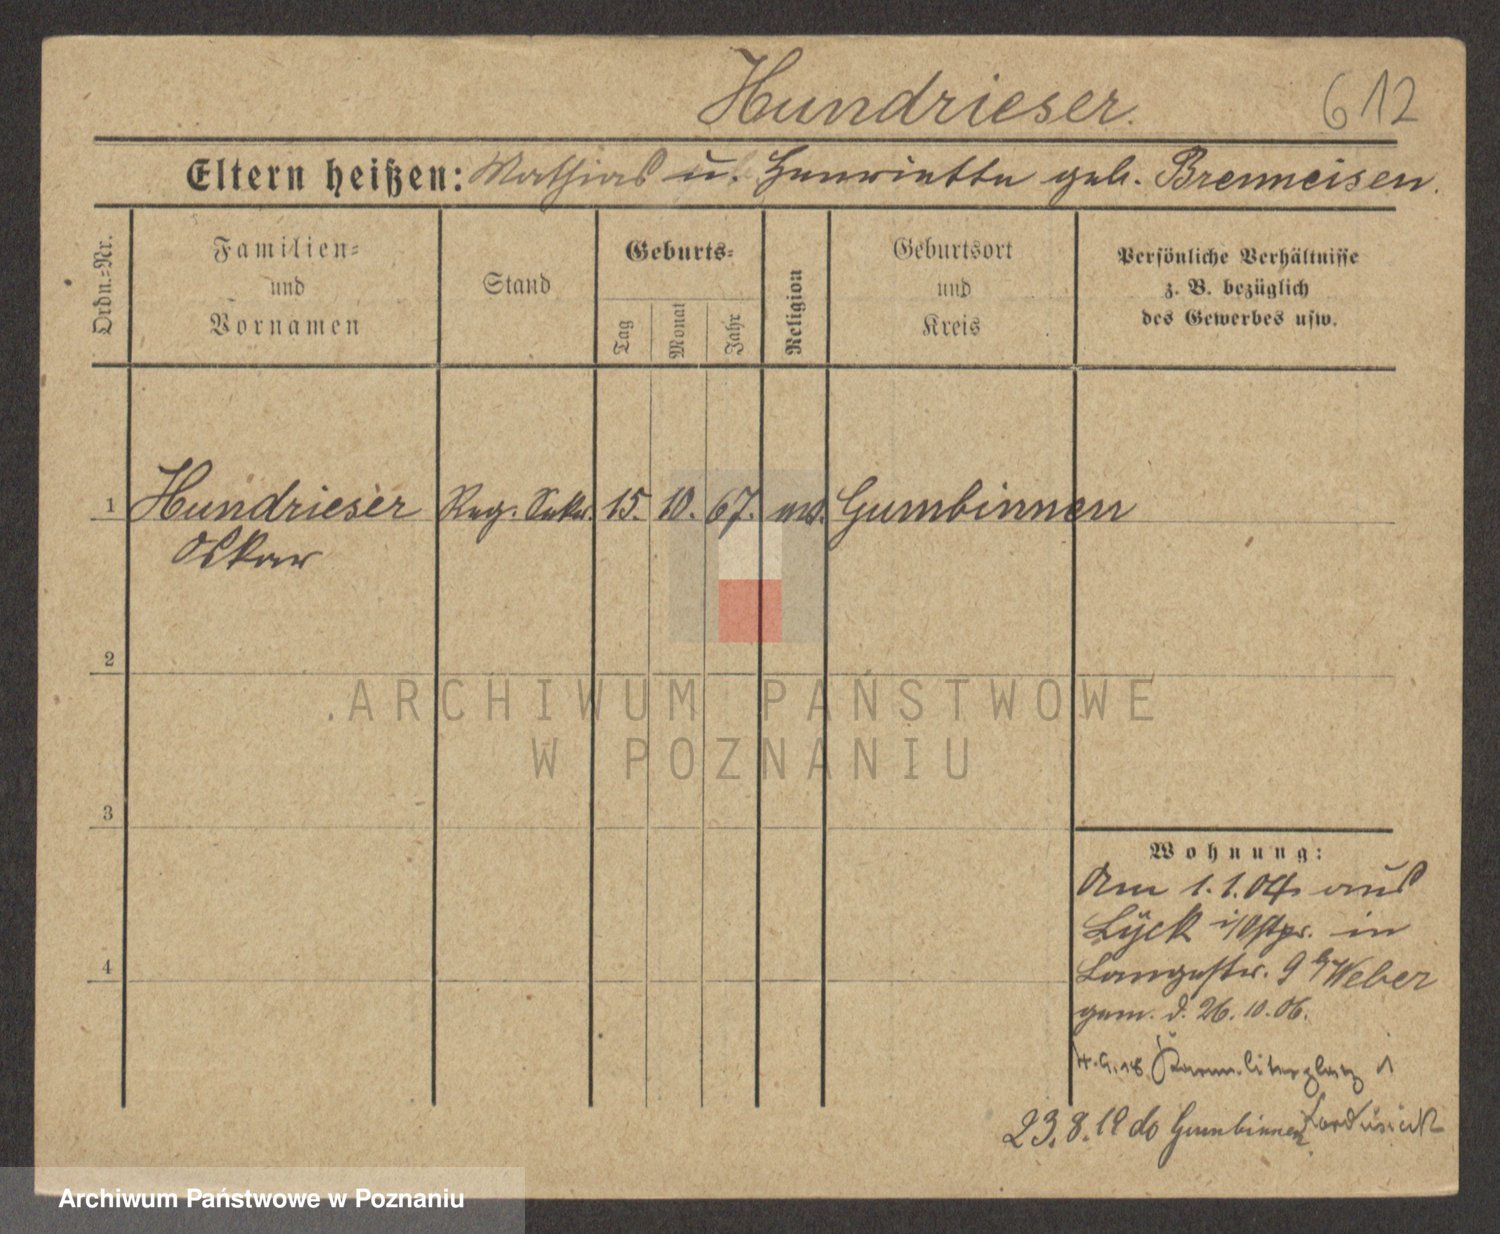 Hundrieser.
612
Eltern heißen: Mathias u. Henriette geb. Brenneisen.
Ordn.=Nr.
Familien=
und
Vornamen
Stand
Geburts=
Tag
Monat
Jahr
Religion
Geburtsort
und
Kreis
Persönliche Verhältnisse
z. B. bezüglich
des Gewerbes usw.
1 Hundrieser Reg. Sekr. 15. 10. 67. ev. Gumbinnen
Oskar
2
3
4
Wohnung:
Am 1.1.04 aus
Lyck i/Ostpr. in
Langestr. 9 b/Weber
gem. d. 26.10.06.
Karmeliterplatz 1
23.8.19 do Gumbinnen
ARCHIWUM PAŃSTWOWE
W POZNANIU
Archiwum Państwowe w Poznaniu